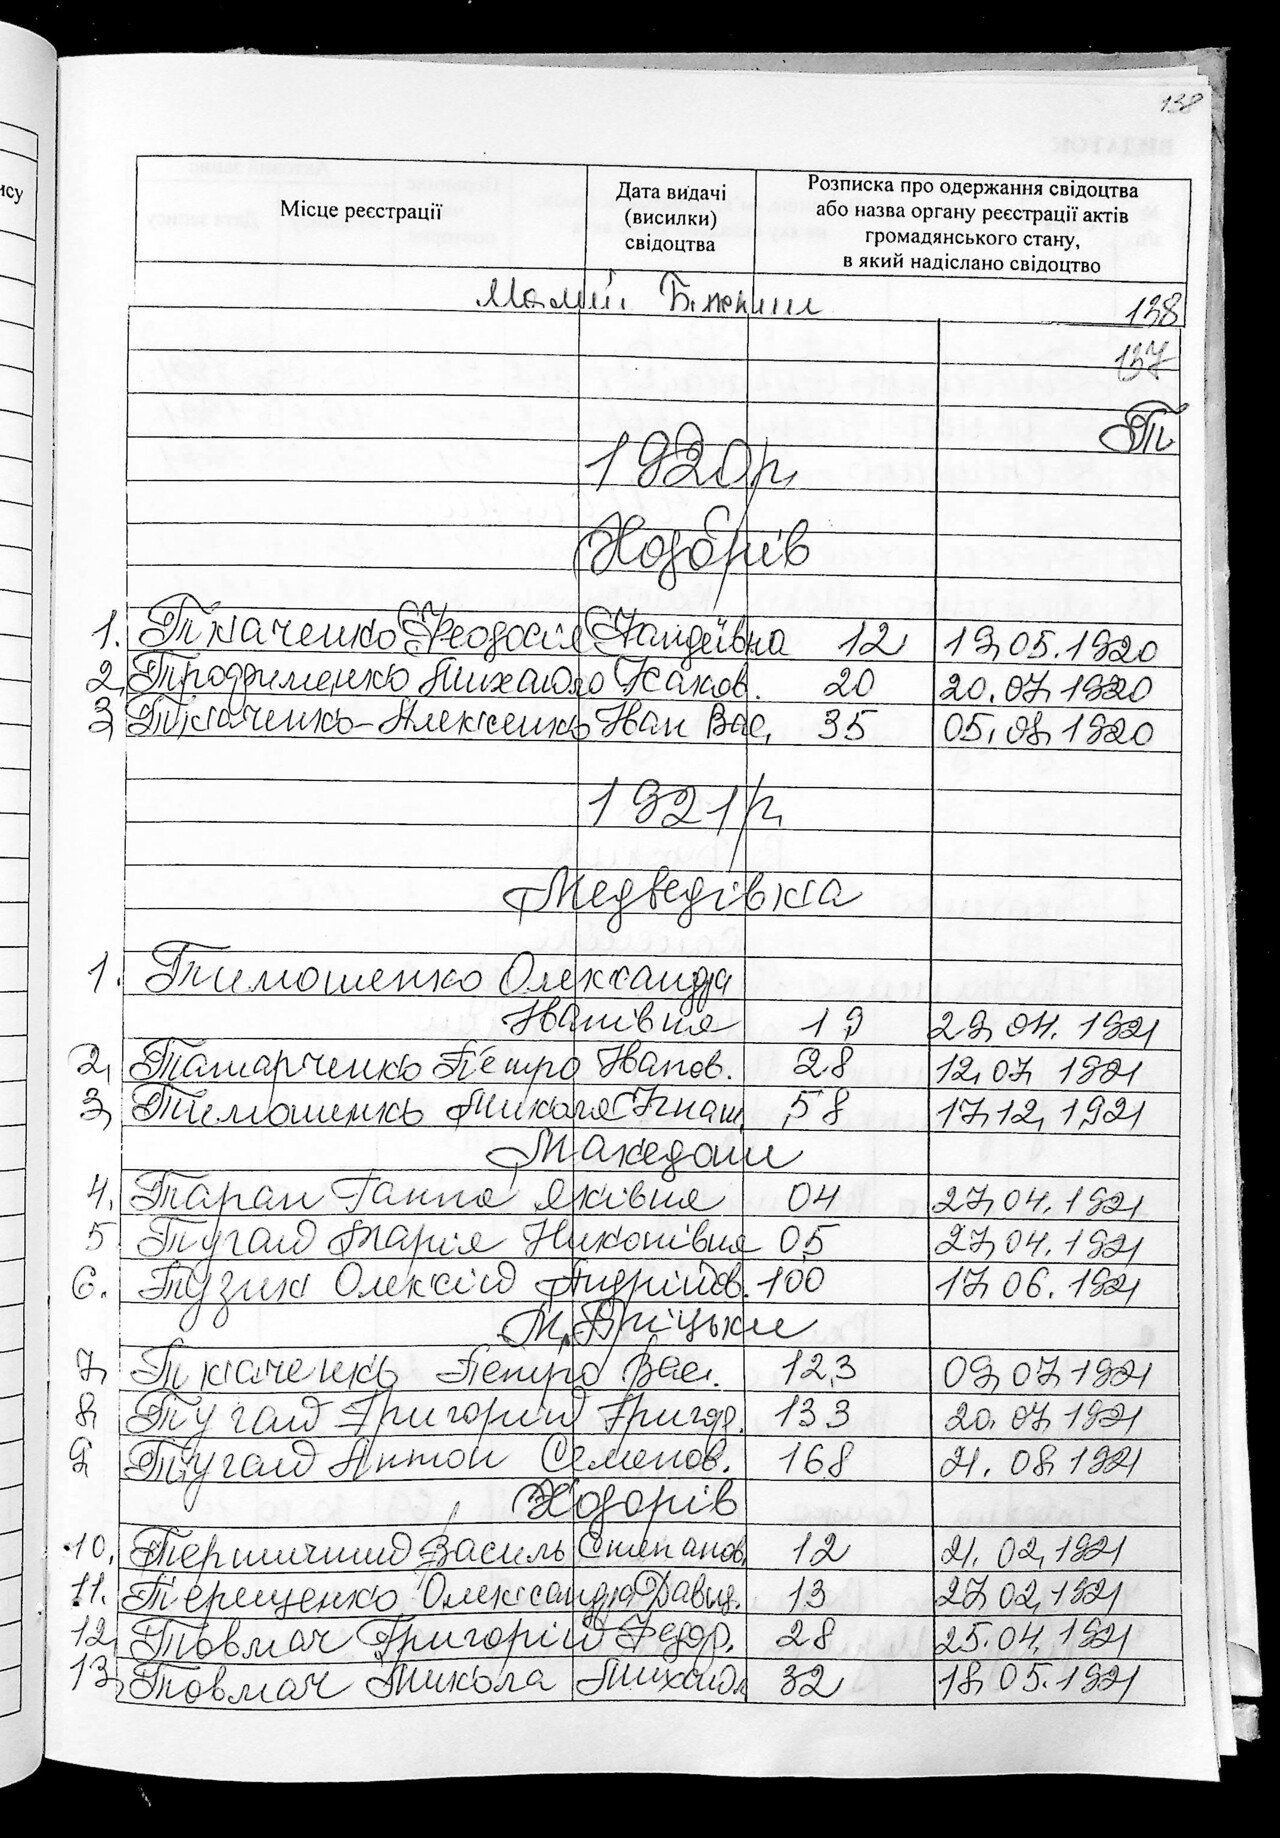 138
ису
Місце реєстрації
Дата видачі
(висилки)
свідоцтва
Розписка про одержання свідоцтва
або назва органу реєстрації актів
громадянського стану,
в який надіслано свідоцтво
138
137
1920 р.
Ходорів
1. Ткаченко Феодосія 12 19.05.1920
2. Трофименко Михайло Іаков. 20 20.07.1920
3. Ткаченко-Алексенко Іван Вас. 35 05.08.1920
1921 р.
Медведівка
1. Тимошенко Олександра
Іванівна 19 29.04.1921
2. Татарченко Петро Іванов. 28 12.07.1921
3. Тимошенко Микола Ігнат. 58 17.12.1921
Македони
4. Таран Ганна Яківна 04 27.04.1921
5 Тугай Марія Никонівна 05 27.04.1921
6. Тузик Олексій Андрійов. 100 17.06.1921
М. Прицьки
7. Ткаченко Петро Вас. 123 09.07.1921
8. Тугай Григорий Григор. 133 20.07.1921
9. Тугай Антон Семенов. 168 21.08.1921
Ходорів
10. Василь Степанов. 12 21.02.1921
11. Терещенко Олександра Давид. 13 27.02.1921
12. Товмач Григорій Федор. 28 25.04.1921
13. Товмач Микола Михайл 32 18.05.1921